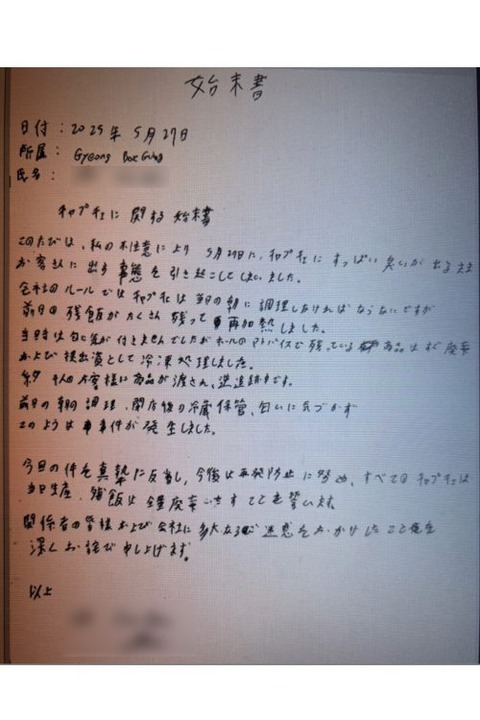 始末書
日付：2025年5月27日
所属：Gyeong Bok Gung
氏名：
チャプチェに関する始末書
このたびは、私の不注意により 5月27日に、チャプチェにすっぱい臭いが出るまま
お客さんに出す事態を引き起こしてしまいました。
会社のルールではチャプチェは当日の朝に調理しなければならないですが
前日の残飯がたくさん残って再加熱しました。
当時は匂に気が付きませんでしたがホールのアドバイスで残っている商品はすぐ廃棄
および提出資として冷凍処理しました。
名のお客様に商品が渡され、追跡です。
前日の朝調理、閉店後の冷蔵保管、匂いに気づかず
このような事件が発生しました。
今回の件を真摯に反省し、今後は再発防止に努め、すべてのチャプチェは
当日生産、残飯は全量廃棄いたすことを誓います。
関係者の皆様および会社に多大なるご迷惑をおかけしたこと
深くお詫び申し上げます。
以上